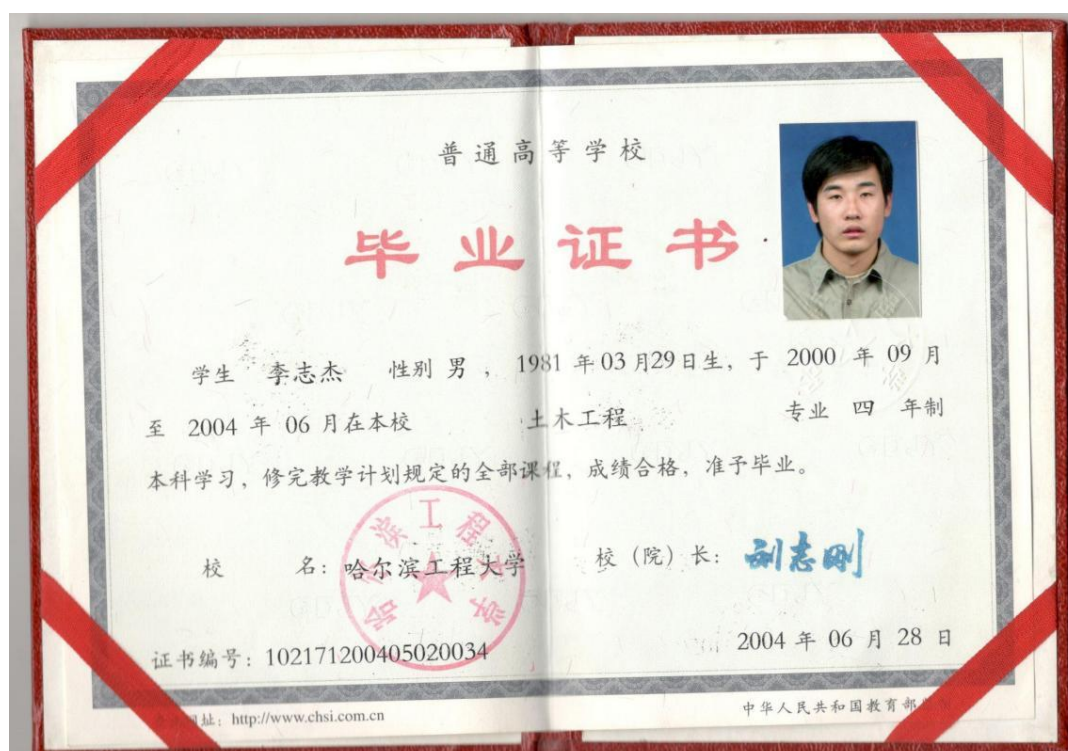 普通高等学校
毕业证书
学生 李志杰 性别 男 ， 1981 年 03 月 29 日生，于 2000 年 09 月
至 2004 年 06 月在本校 土木工程 专业 四 年制
本科学习，修完教学计划规定的全部课程，成绩合格，准予毕业。
校 名：哈尔滨工程大学 校（院）长：刘志刚
哈尔滨工程大学
2004 年 06 月 28 日
证书编号：102171200405020034
网址：http://www.chsi.com.cn
中华人民共和国教育部